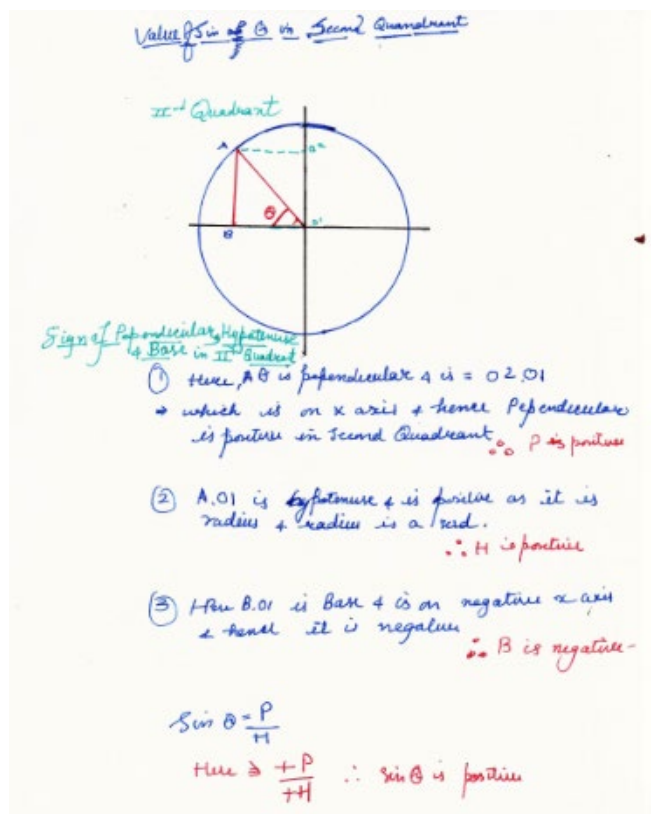 Value of Sin of θ in Second Quandrant
IInd Quadrant
A
O2
θ
B
O1
Sign of Pependicular, Hypotenuse
& Base in IInd Quadrat
① Here, AB is pependicular & is = 02.01
→ which is on x axis & hence Pependicular
is positive in Second Quadrant
∴ P is positive
② A.01 is hypotenuse & is positive as it is
radius & radius is a
∴ H is positive
③ Here B.01 is Base & is on negative x axis
& hence it is negative
∴ B is negative
Sin θ = P/H
Here +P/+H ∴ Sin θ is positive